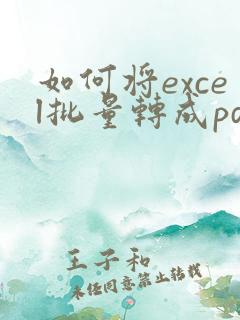 如何将exce
l批量转成pd
王子和
未经同意禁止转载